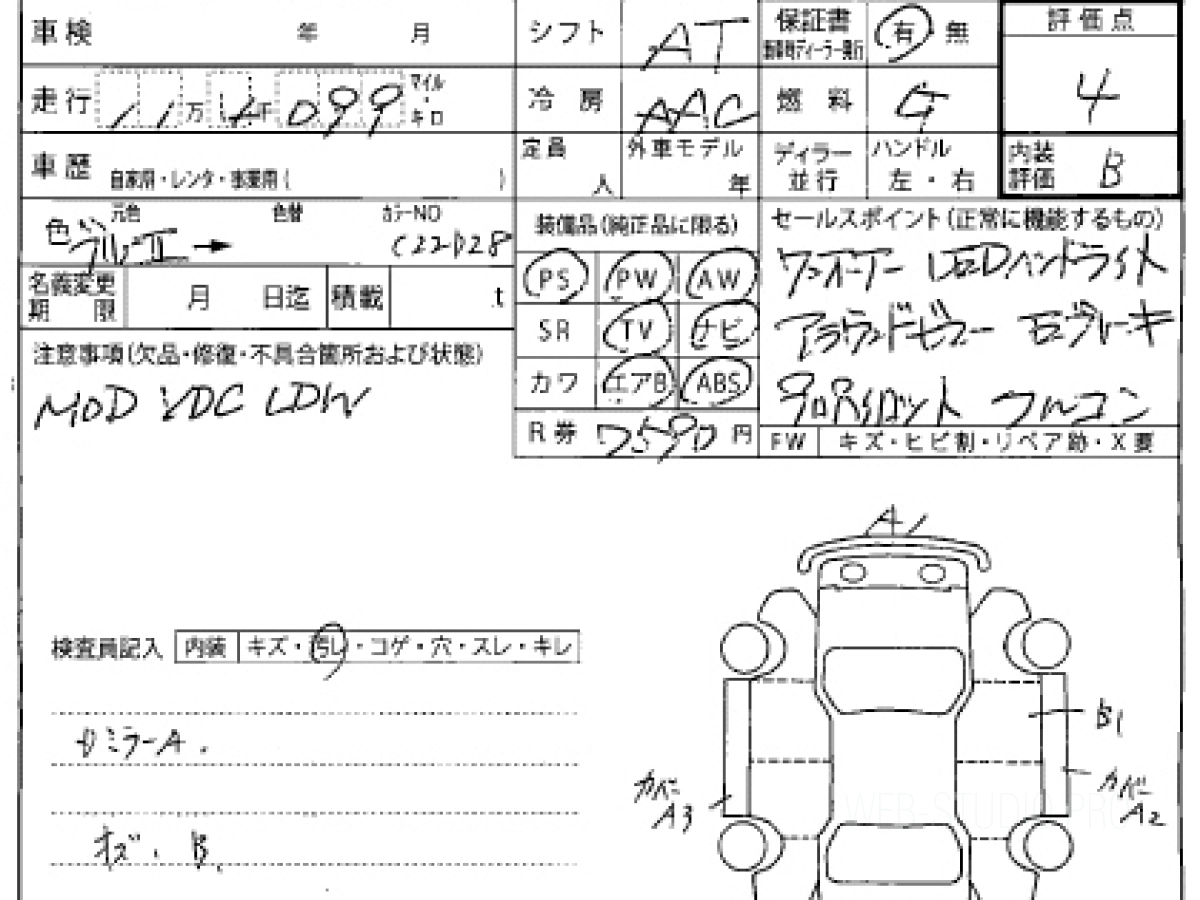 車検 年 月 シフト AT 保証書 有 無 評価点
新車時ディーラー発行
走行 11万4千099 マイル・キロ 冷房 AAC 燃料 G 4
車歴 自家用・レンタ・事業用( ) 定員 人 外車モデル 年 ディラー 並行 ハンドル 左・右 内装評価 B
色 元色 色替 カラーNO 装備品(純正品に限る) セールスポイント(正常に機能するもの)
C22D28
PS PW AW ワンオーナー LEDヘッドライト
名義変更期限 月 日迄 積載 .t
SR TV ナビ アラウンドビュー
注意事項(欠品・修復・不具合箇所および状態)
カワ エアB ABS
MOD VDC LDW
R券 7590円 フルコン
FW キズ・ヒビ割・リペア跡・X要
A1
検査員記入 内装 キズ・汚レ・コゲ・穴・スレ・キレ
B1
ミラーA.
カバー A3 カバー A2
B.
WEB-STUDIO.PRO